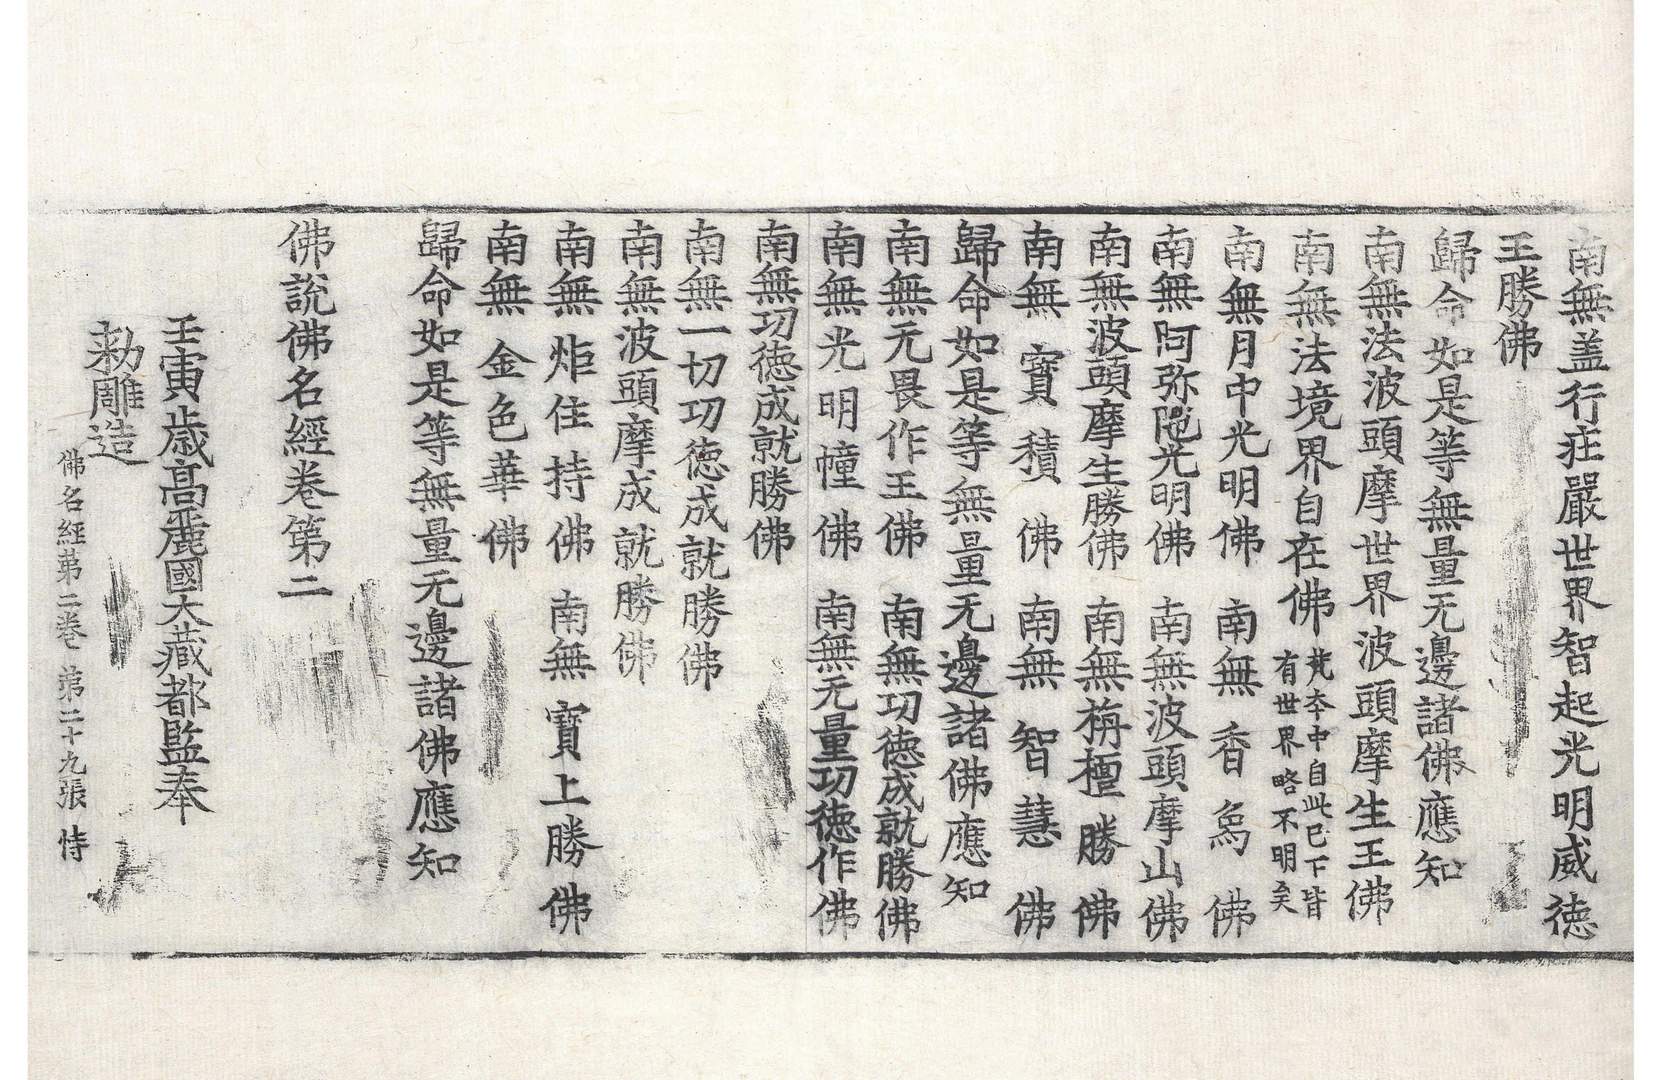 南無盖行莊嚴世界智起光明威徳
王勝佛
歸命如是等無量无邊諸佛應知
南無法波頭摩世界波頭摩生王佛
南無法境界自在佛 梵夲中自此已下皆
有世界略不明矣
南無月中光明佛 南無香鳥佛
南無阿弥陁光明佛 南無波頭摩山佛
南無波頭摩生勝佛 南無栴檀勝佛
南無寶積佛 南無智慧佛
歸命如是等無量无邊諸佛應知
南無无畏作王佛 南無功徳成就勝佛
南無光明幢佛 南無无量功徳作佛
南無功徳成就勝佛
南無一切功徳成就勝佛
南無波頭摩成就勝佛
南無炬住持佛 南無寶上勝佛
南無金色華佛
歸命如是等無量无邊諸佛應知
佛說佛名經卷第二
壬寅歳高麗國大藏都監奉
勑雕造
佛名經苐二卷 苐二十九張 恃